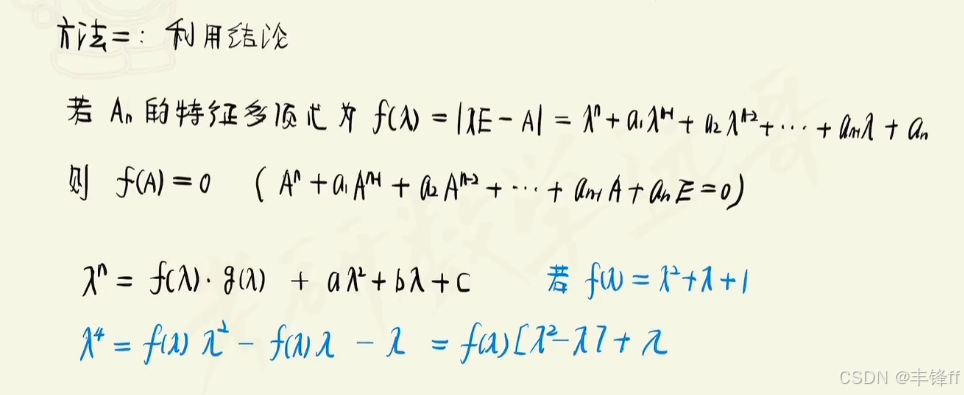 方法二：利用结论
若 Aₙ 的特征多项式为 f(λ) = |λE − A| = λⁿ + a₁λⁿ⁻¹ + a₂λⁿ⁻² + ⋯ + aₙ₋₁λ + aₙ
则 f(A) = 0 ( Aⁿ + a₁Aⁿ⁻¹ + a₂Aⁿ⁻² + ⋯ + aₙ₋₁A + aₙE = 0 )
λⁿ = f(λ)·g(λ) + aλ² + bλ + c 若 f(λ) = λ² + λ + 1
λ⁴ = f(λ) λ² − f(λ) λ − λ = f(λ)[λ² − λ] + λ
CSDN @丰锋ff